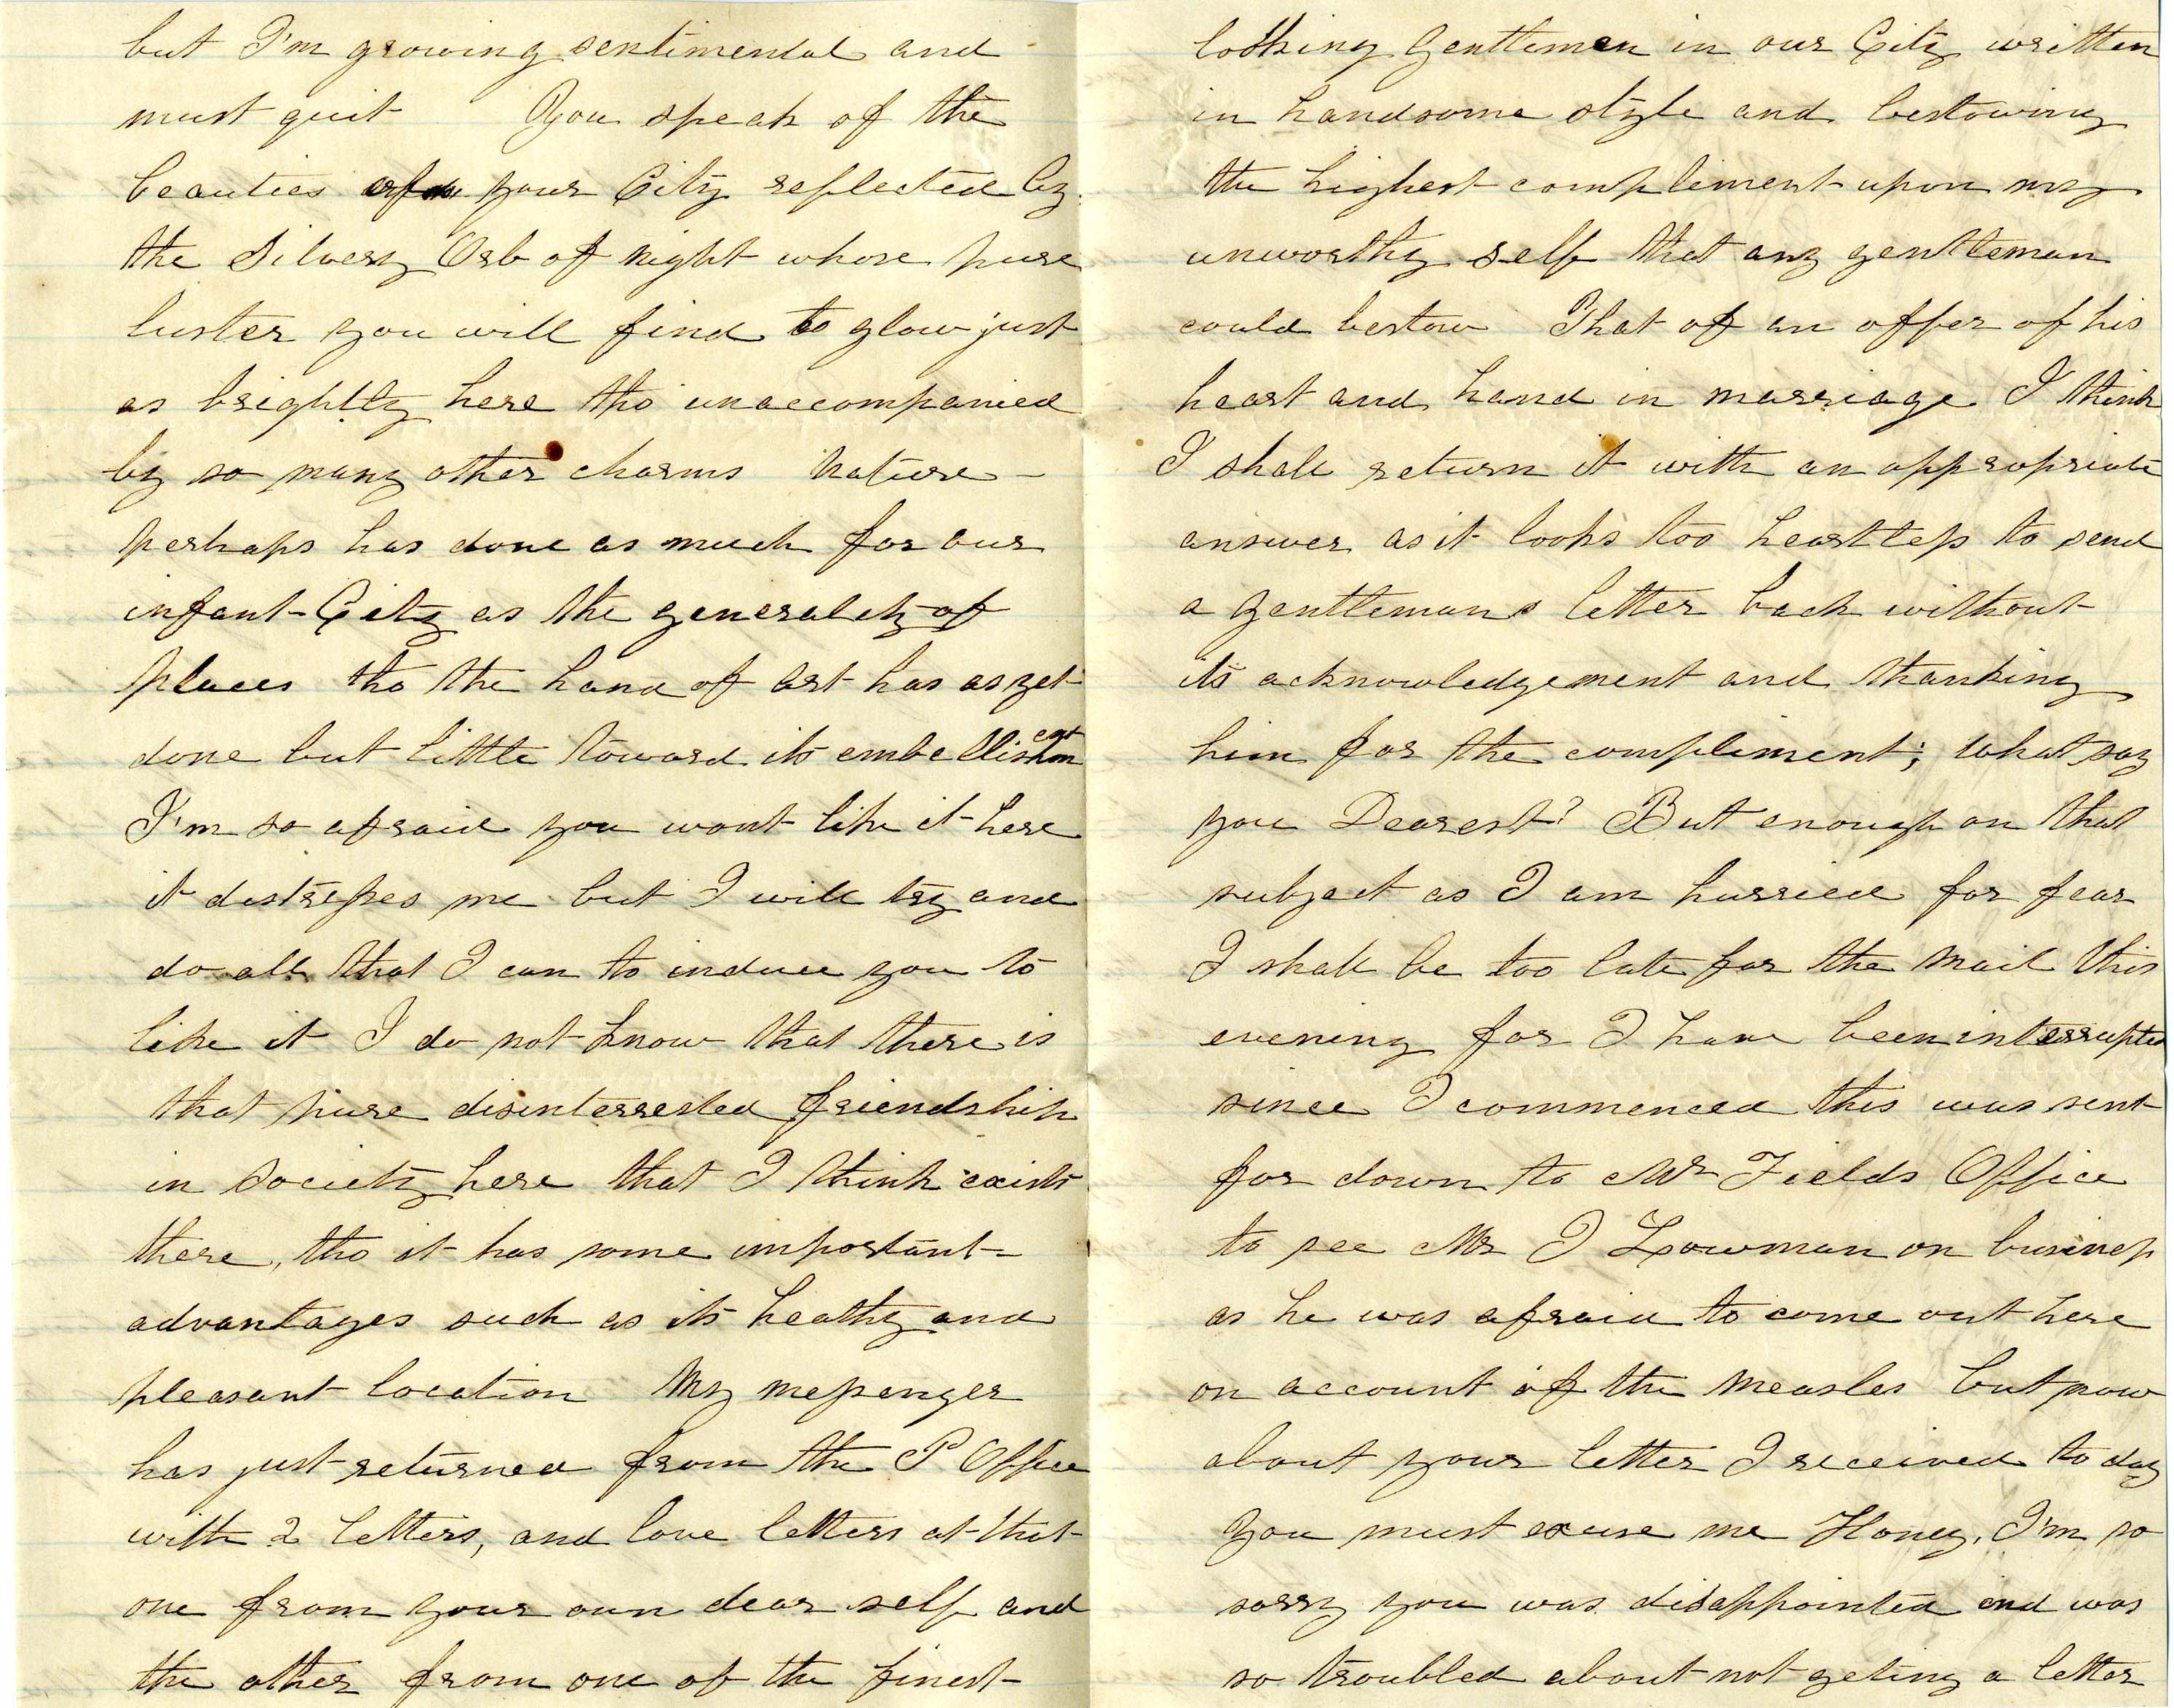 but I'm growing sentimental and
must quit You speak of the
beauties of your City reflected by
the Silvery Orb of night whose pure
luster you will find to glow just
as brightly here tho unaccompanied
by so many other charms Nature -
perhaps has done as much for our
infant City as the generality of
places tho the hand of art has as yet
done but little toward its embellishment
I'm so afraid you wont like it here
it distresses me but I will try and
do all that I can to induce you to
like it I do not know that there is
that pure disinterrested friendship
in society here that I think exists
there, tho it has some important
advantages such as its heathy and
pleasant location My messenger
has just returned from the P Office
with 2 letters, and love letters at that
one from your own dear self and
the other from one of the finest
looking gentlemen in our City written
in handsome style and bestowing
the highest compliment upon my
unworthy self that any gentleman
could bestow That of an offer of his
heart and hand in marriage I think
I shall return it with an appropriate
answer as it looks too heartless to send
a gentlemans letter back without
its acknowledgement and thanking
him for the compliment; what say
you Dearest? But enough on that
subject as I am hurried for fear
I shall be too late for the mail this
evening for I have been interrupted
since I commenced this was sent
for down to Mr Fields Office
to see Mr J Lowman on business
as he was afraid to come out here
on account of the measles but now
about your letter I received to day
you must excuse me Honey, I'm so
sorry you was disappointed and was
so troubled about not geting a letter